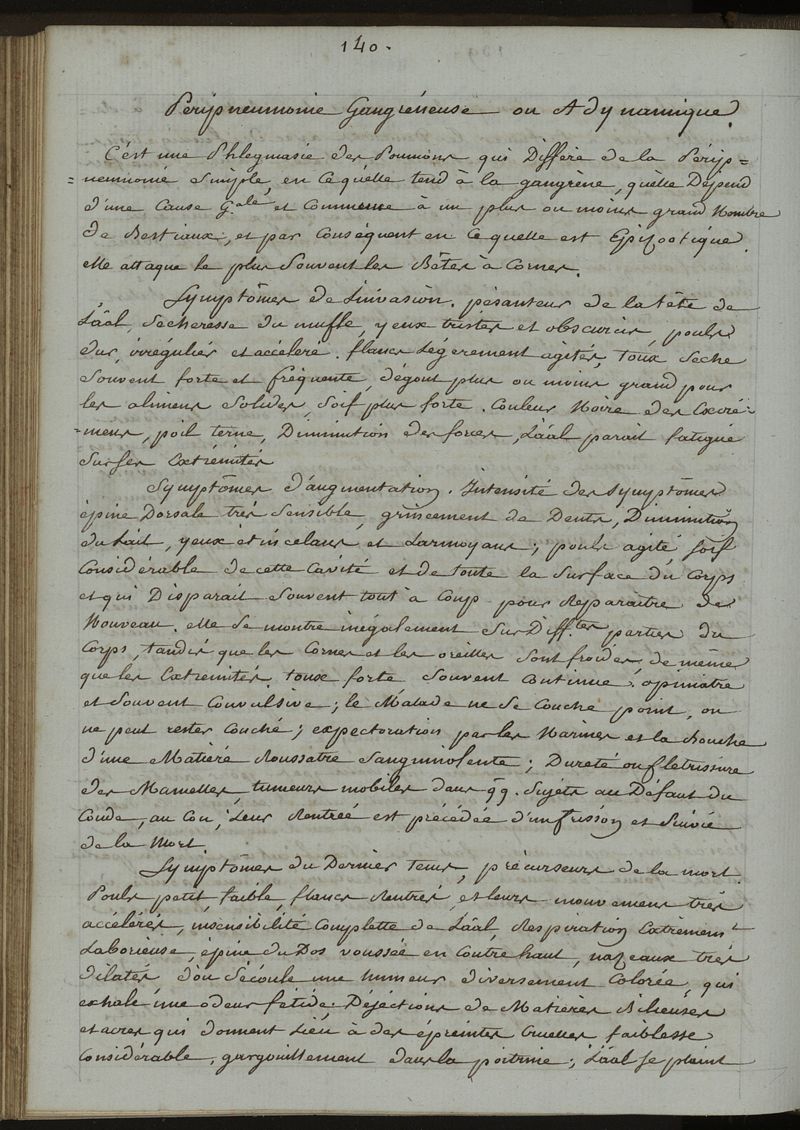 140.
Péripneumonie Gangréneuse ou Adynamique.
C'est une Phlegmasie des Poumons qui Diffère de la Périp=
=neumonie Simple, en Ce quelle tend à la gangrène, quelle Dépend
d'une Cause G.ale et Commune à un plus ou moins grand Nombre
de Bestiaux, et par Conséquent en Ce quelle est Epizootique.
elle attaque le plus Souvent les Bêtes à Cornes.
Symptômes de L'invasion. pésanteur de la tête de
L'aâl, Sécheresse du muffle, yeux tristes et obscurcis, pouls
dur, irrégulier et accéléré. flancs Légèrement agités, toux Seche
Souvent forte et fréquente, dégout plus ou moins grand pour
les alimens Solides, Soif plus forte. Couleur Noire des Excré-
-mens, poil terne, Diminution des forces, L'aâl parait fatigué
Sur ses Extrémités
Symptômes d'augmentation. Intensité des Symptômes
épine Dorsale très Sensible, grincement de Dents, Diminution
du Lait, yeux étincelans et Larmoyans; pouls agité, soif
Considérable de cette Cavité et de toute la Surface du Corps
et qui Disparait Souvent tout à Coup pour Reparaitre de
Nouveau. elle Se montre inegalement Sur Diff.tes parties du
Corps, tandis que les Cornes et les oreilles Sont froides, de même
que les Extremités, toux forte Souvent Continue, opiniatre
et Souvent Convulsive; le Malade ne Se Couche point, ou
ne peut rester Couché; expectoration par les Narines et la Bouche
d'une Matière Roussatre Sanguinolente; Dureté ou fletrissure
des Mamelles, tumeurs mobiles dans qq. Sujets au Défaut du
Coude, au Cou, Leur Rentrée est précédée d'un frisson et Suivie
de la Mort.
Symptômes du Dernier Tems, précurseurs de la mort.
Pouls petit faible, flancs Rentrés, et leurs mouvemens très
accélérés, insensibilité Complette de L'aâl, Respiration Extrêmem.t
Laborieuse, épine du Dos voussée en Contrehaut, nazeaux très
dilatés d'où S'écoule une humeur diversement Colorée, qui
exhale une odeur fétide. Déjections de Matières Bilieuses
et acres qui donnent Lieu à des épreintes Cruelles, faiblesse
Considérable, gargouillement dans la poitrine; L'aâl se plaint